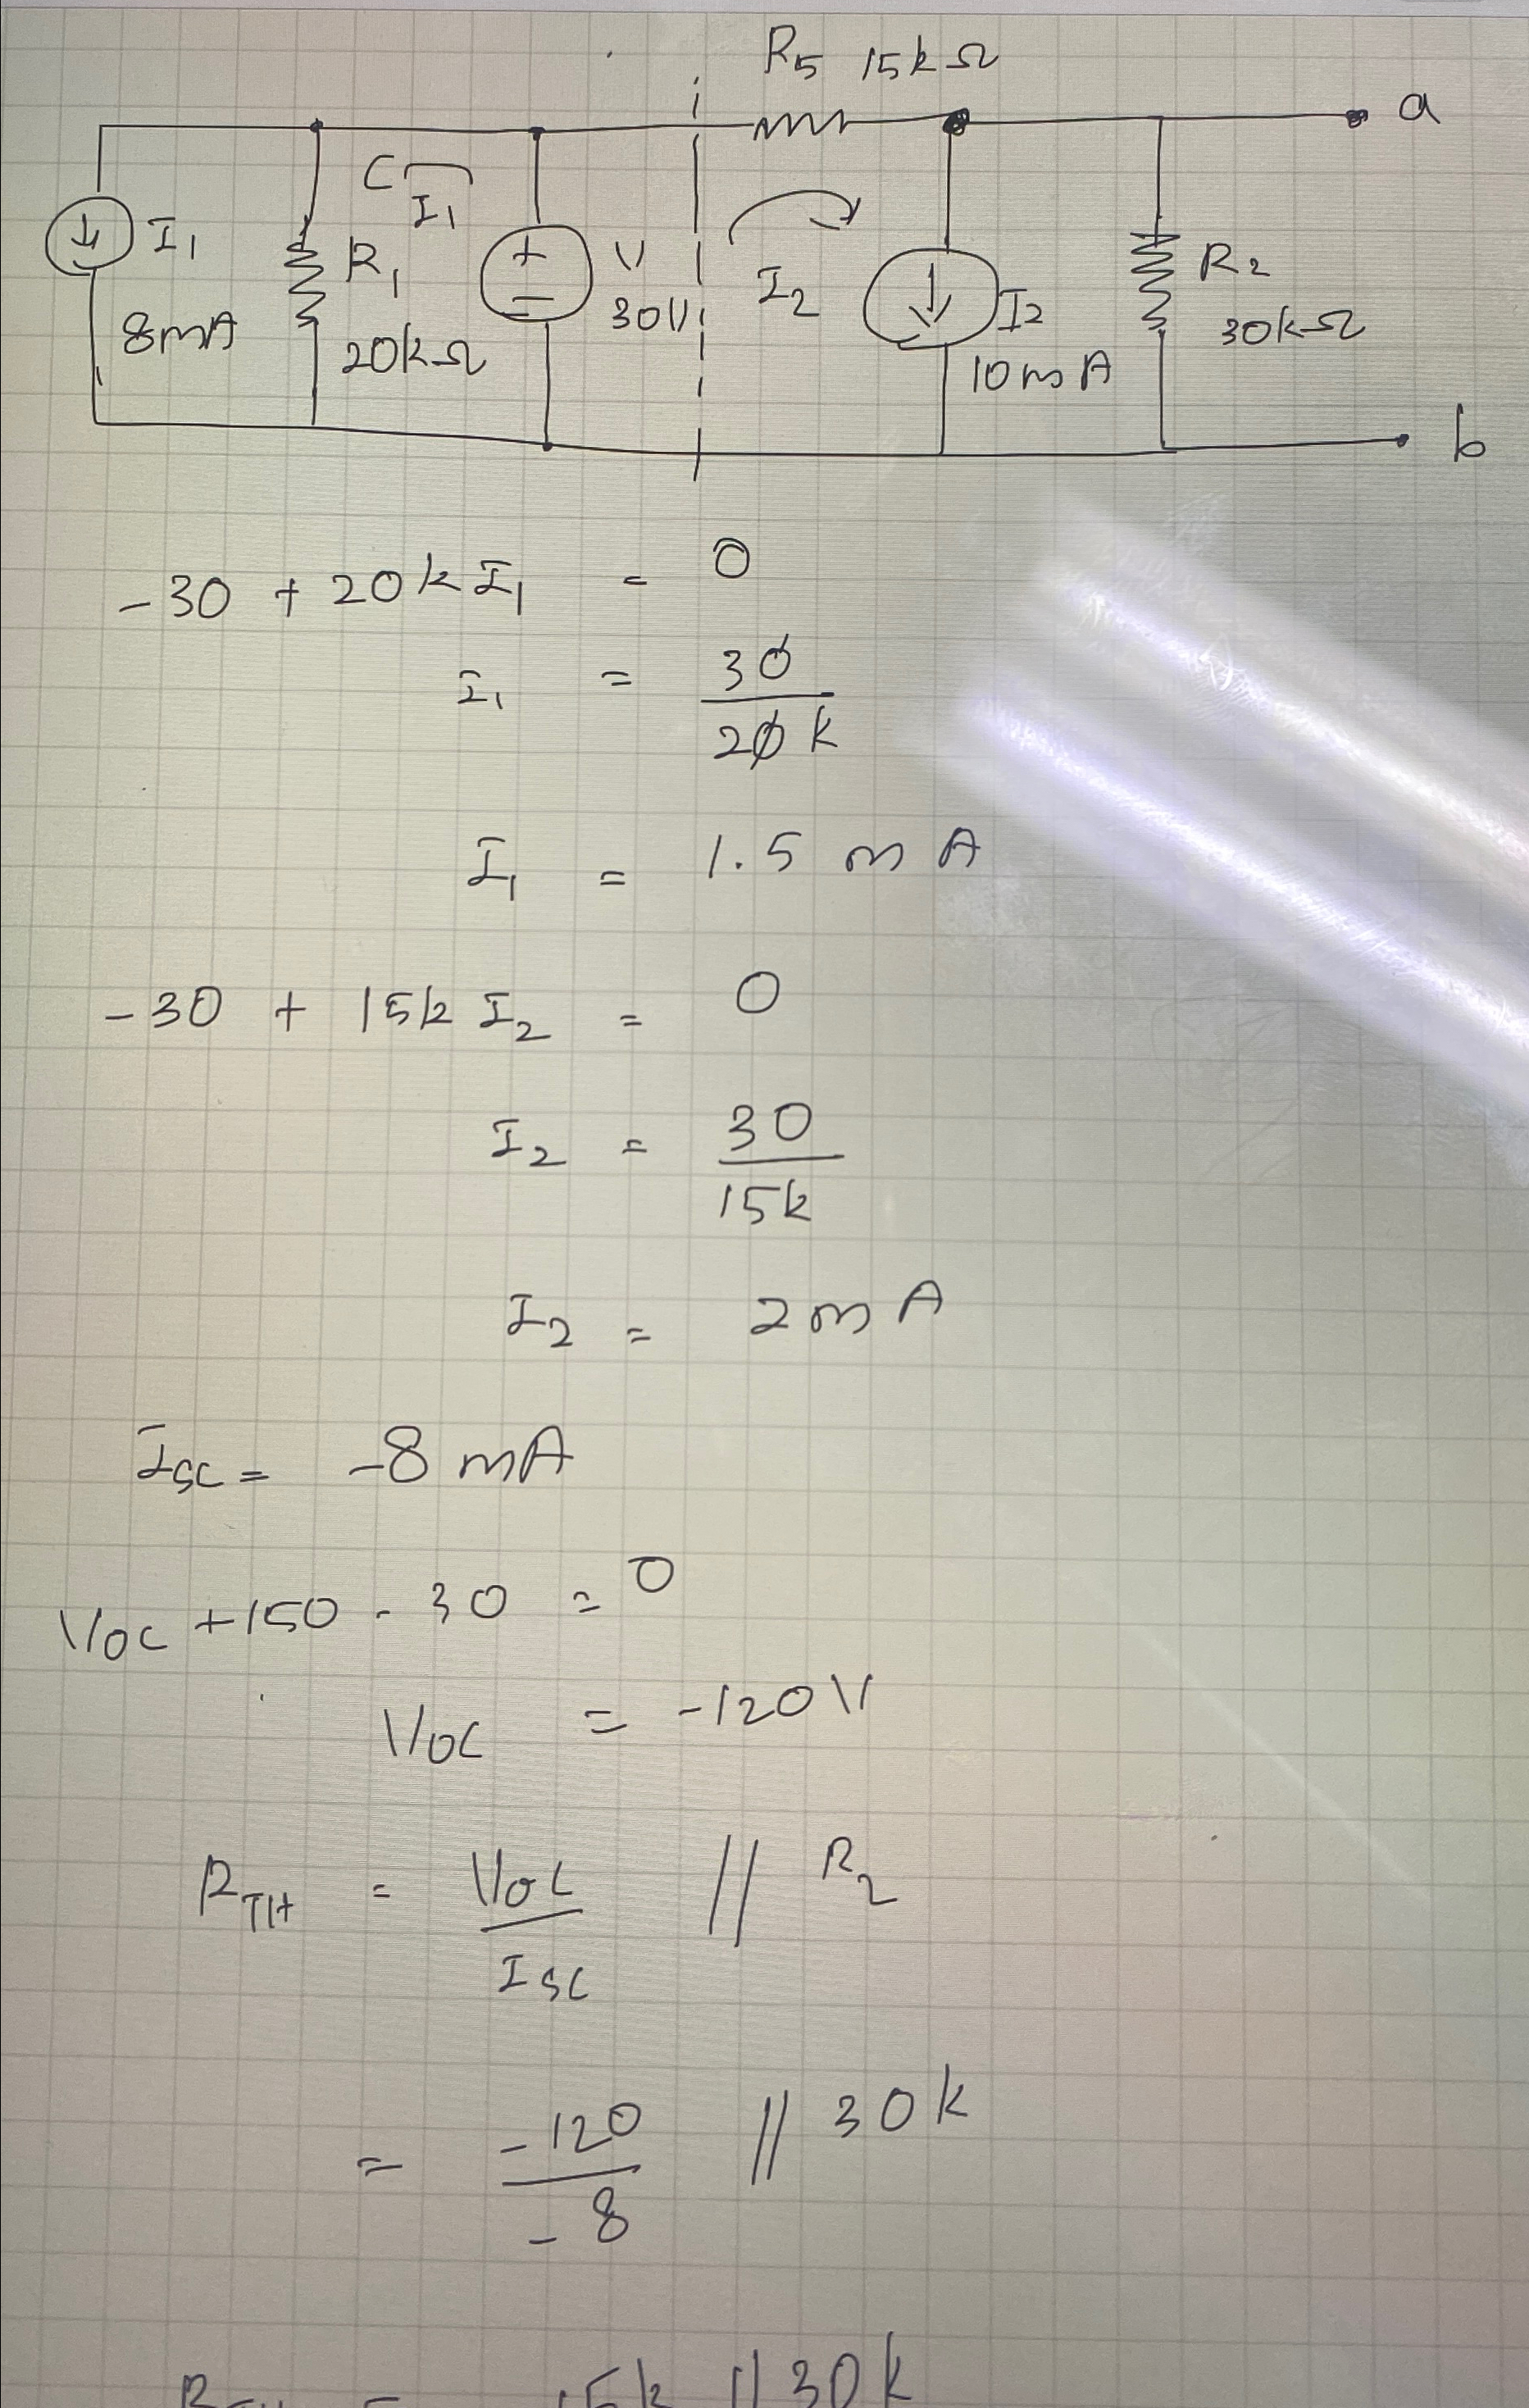 R5 15kΩ
a
I1
8mA
R1
20kΩ
I1
+
−
V
30V
I2
I2
10mA
R2
30kΩ
b
-30 + 20k I1 = 0
I1 = 30/20k
I1 = 1.5 mA
-30 + 15k I2 = 0
I2 = 30/15k
I2 = 2mA
ISC = -8 mA
VOC +150 - 30 = 0
VOC = -120V
RTH = VOC/ISC // R2
= -120/-8 // 30k
15k // 30k